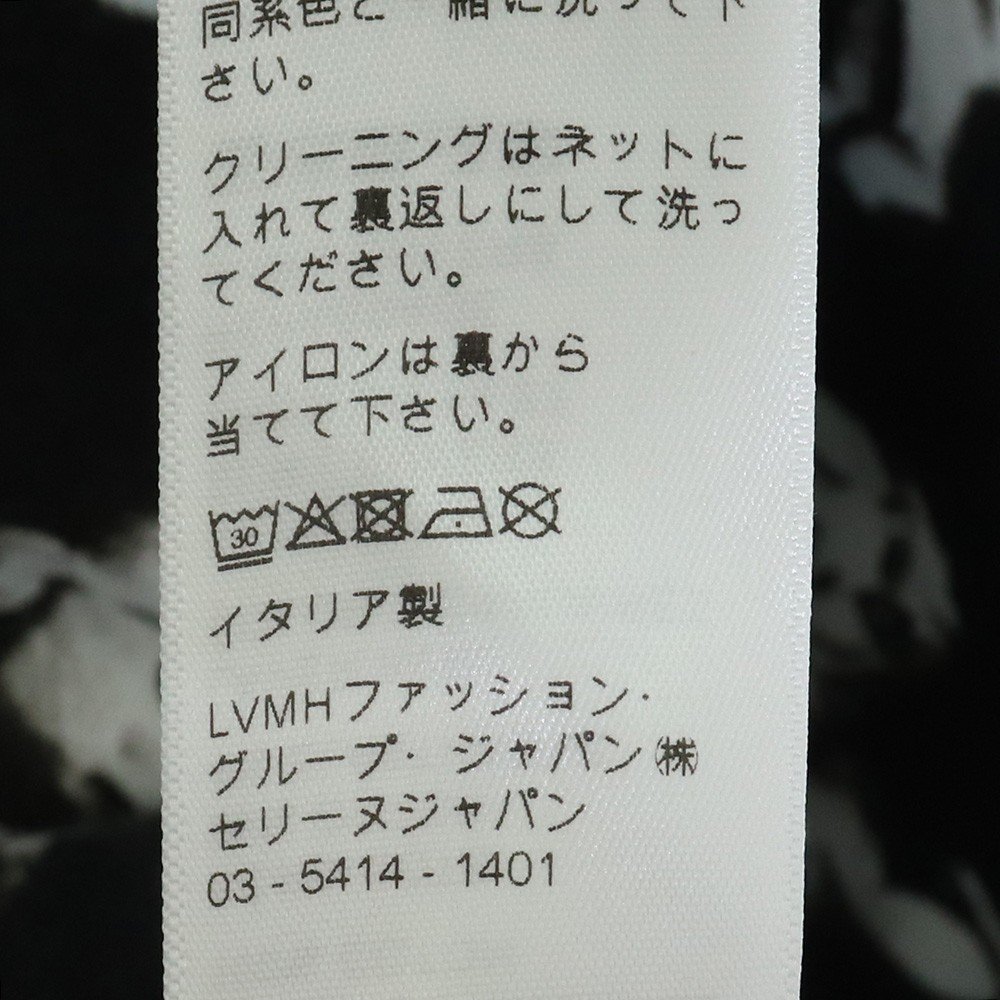 同系色と一緒に洗って下
さい。
クリーニングはネットに
入れて裏返しにして洗っ
てください。
アイロンは裏から
当てて下さい。
30
イタリア製
LVMHファッション・
グループ・ジャパン㈱
セリーヌジャパン
03 - 5414 - 1401